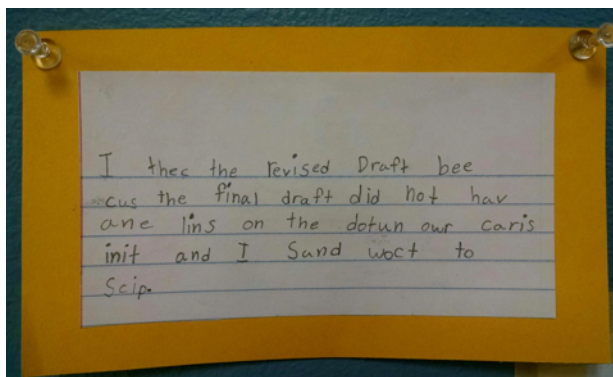 I thec the revised Draft bee
cus the final draft did not hav
ane lins on the dotun owr caris
init and I Sand woct to
Scip.